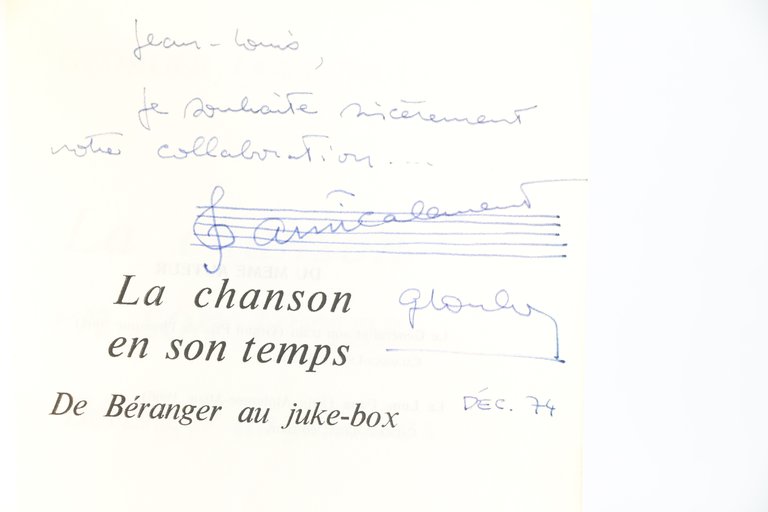 Jean-Louis,
Je souhaite sincèrement
notre collaboration....
amicalement
La chanson
en son temps
De Béranger au juke-box
DÉC. 74